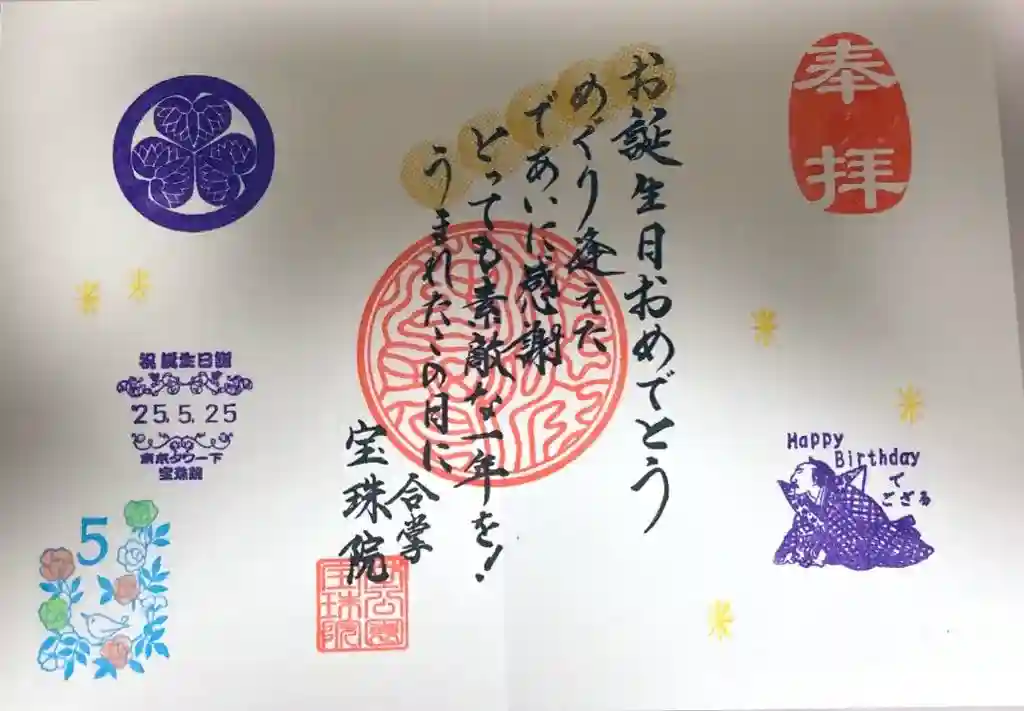 奉拝
Happy
Birthday
で
ござる
お誕生日おめでとう
めぐり逢えた
であいに感謝
とっても素敵な一年を!
うまれたこの日に
合掌
宝珠院
祝 誕生日御
'25.5.25
東京タワー下
宝珠院
5
宝珠院